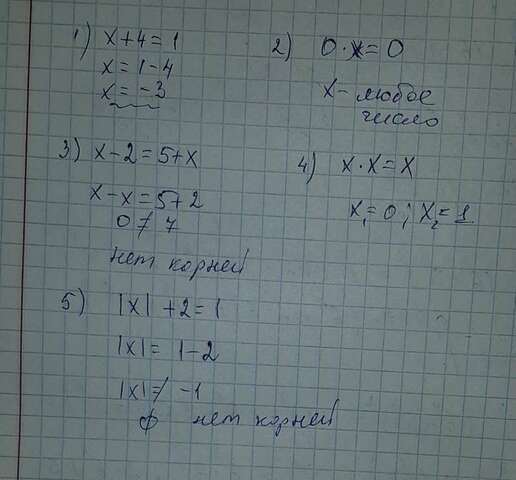 1) x+4=1
x=1-4
x=-3
2) 0·x=0
x- любое
число
3) x-2=5+x
x-x=5+2
0≠7
нет корней
4) x·x=x
x₁=0; x₂=1
5) |x|+2=1
|x|=1-2
|x|≠-1
∅ нет корней